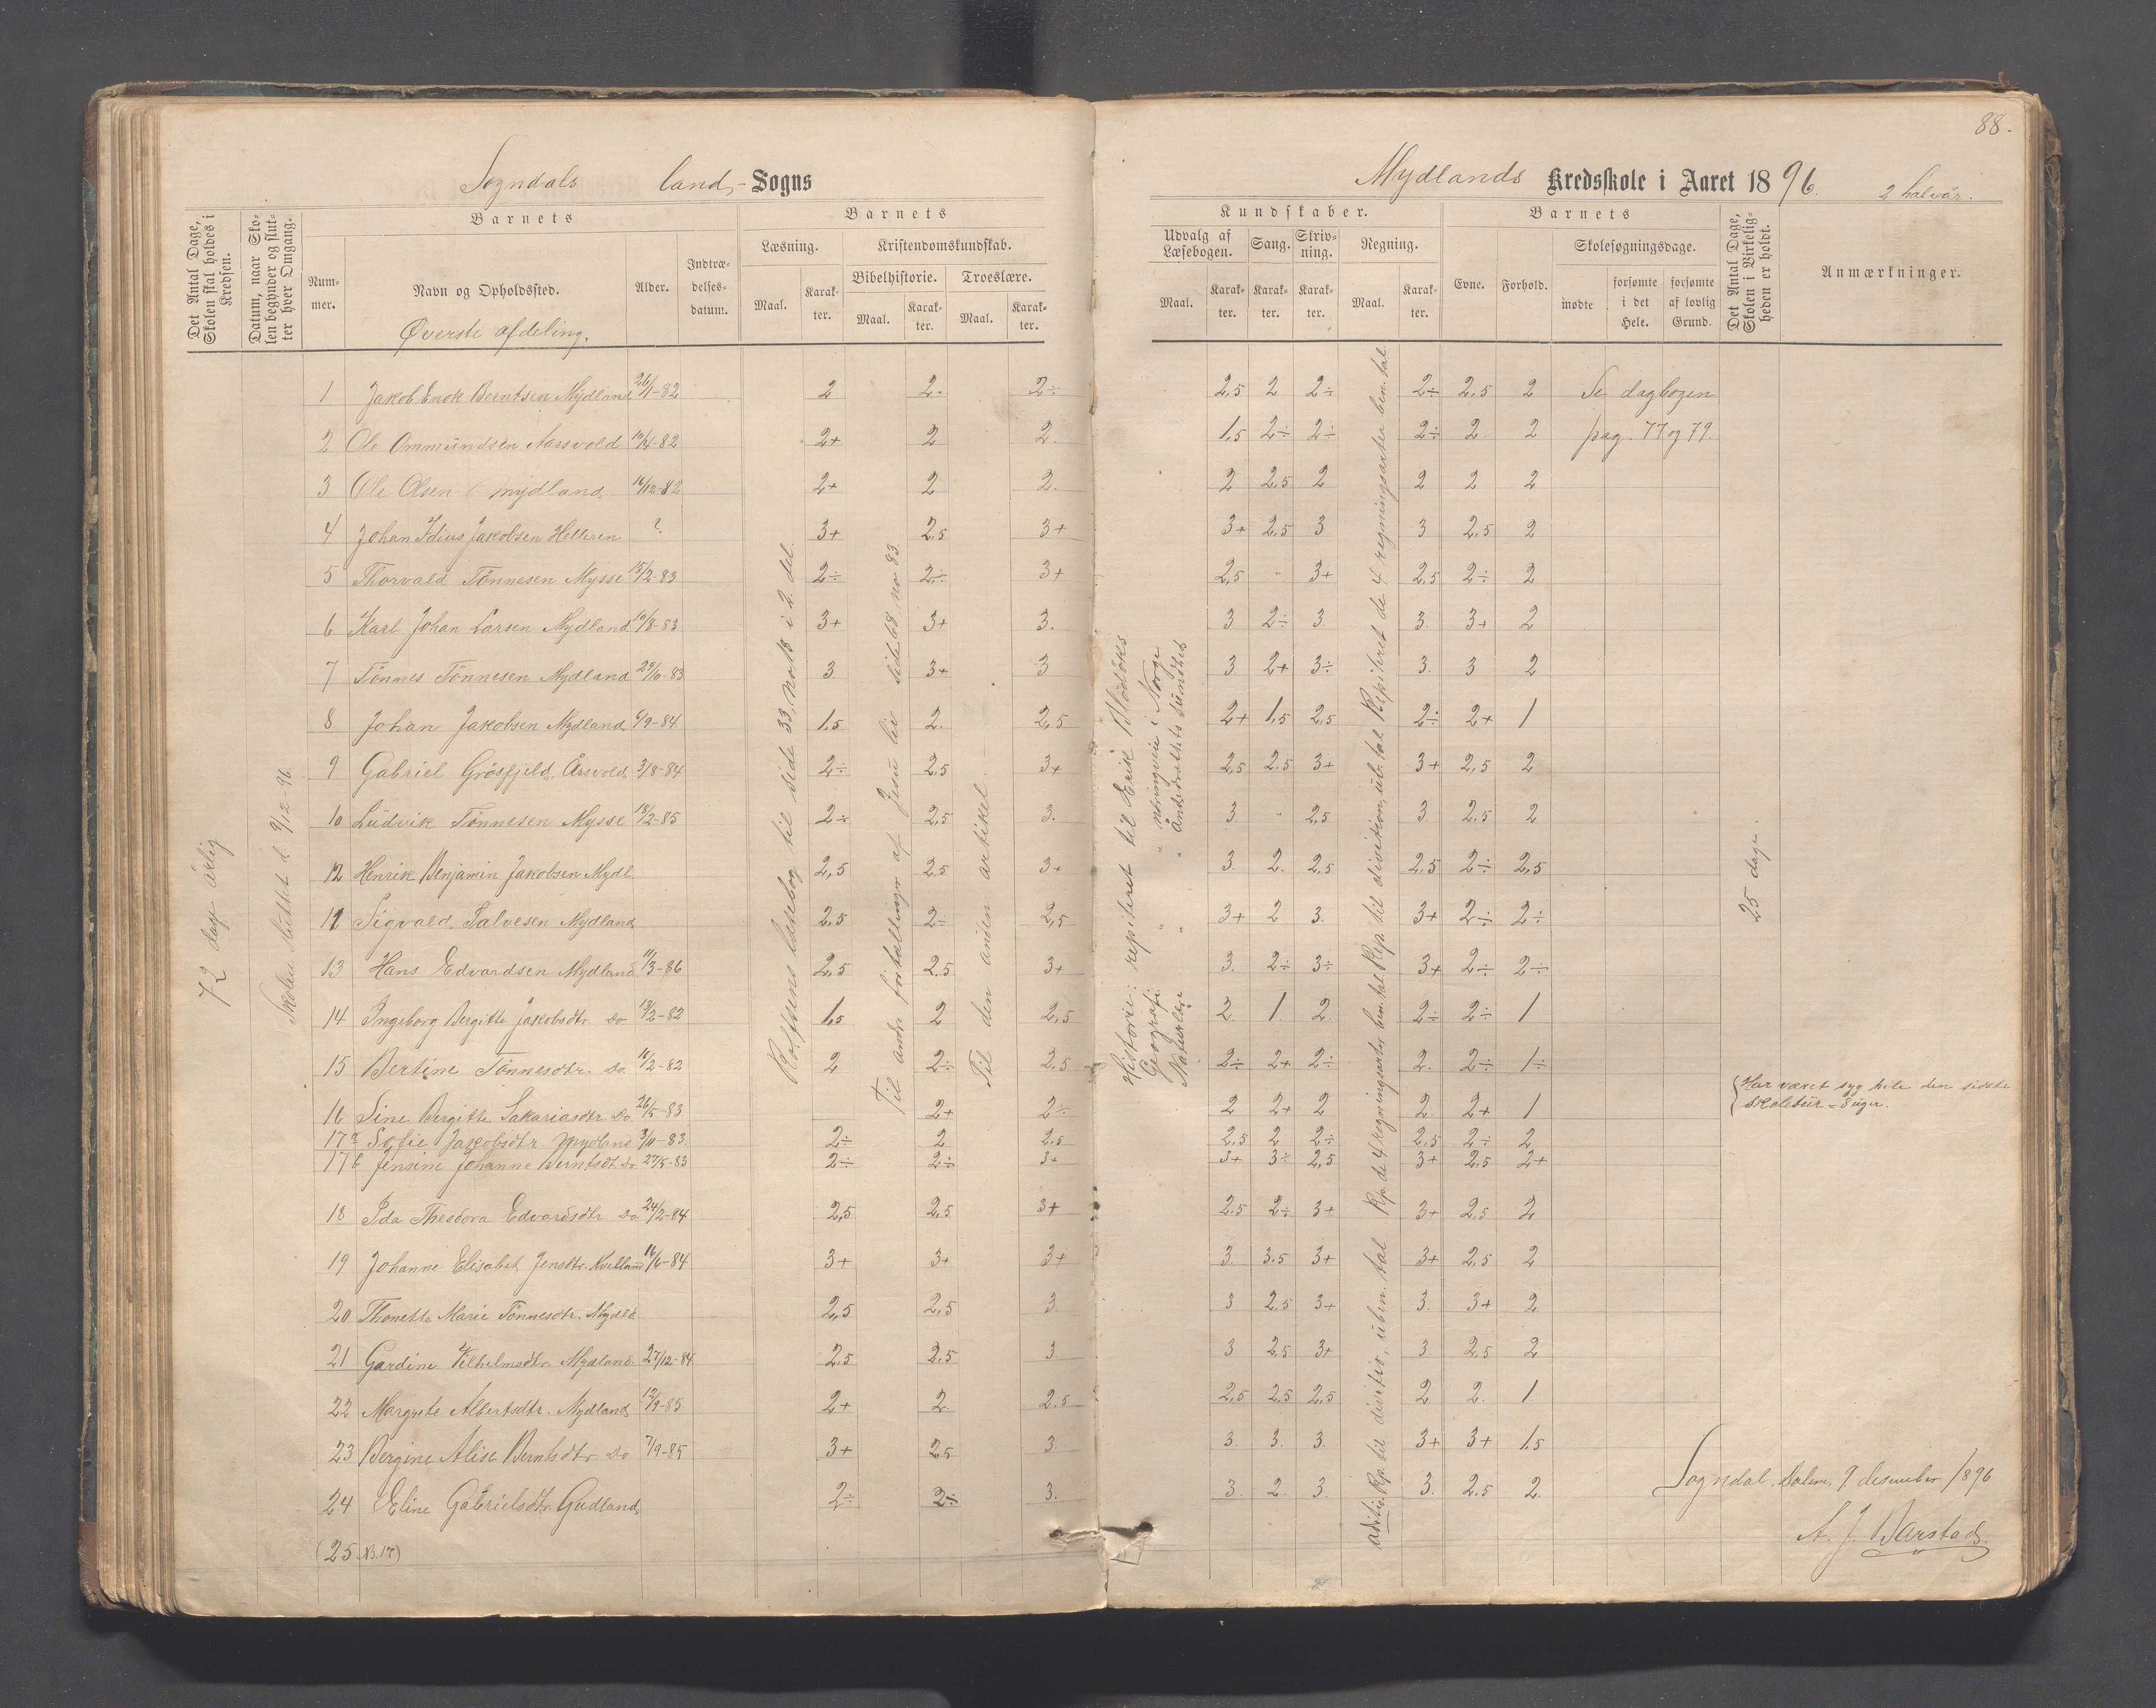 88.
Sogndals land- Sogns
Mydlands Kredsskole i Aaret 1896. 2 halvår.
Det Antal Dage, Skolen skal holdes i Kredsen.
Datum, naar Skolen begynder og slutter hver Omgang.
Barnets
Nummer.
Navn og Opholdssted.
Alder.
Indtrædelsesdatum.
Øverste afdeling.
Barnets
Læsning.
Kristendomskundskab.
Bibelhistorie. Troeslære.
Maal. Karakter. Maal. Karakter. Maal. Karakter.
Kundskaber.
Udvalg af Læsebogen. Sang. Skrivning. Regning.
Maal. Karakter. Karakter. Karakter. Maal. Karakter.
Barnets
Evne. Forhold. Skolesøgningsdage.
mødte forsømte i det Hele. forsømte af lovlig Grund.
Det Antal Dage, Skolen i Virkeligheden er holdt.
Anmærkninger.
72 dage årlig
Skolen sluttet d. 9/12-96.
Rolfsens læsebog til side 33, no 13 i 2. del.
Til andre fortællinger af Jesu liv side 68, no 83
Til den anden artikel.
Historie: repiteret til Erik Blodöks
Geografi: " " næringsveie i Norge
Naturlære " "
Rep. de 4 regningsarter ben. tal. Rep. til division, ub. tal Repiteret de 4 regningsarter ben. tal
adition Rep. til divisio, uben. tal
25 dage.
1 Jakob Enok Berntsen Mydland 26/1-82 2 2. 2÷ 2,5 2 2÷ 2÷ 2,5 2 Se dagbogen
2 Ole Ommundsen Aarsvold 10/4-82 2+ 2 2. 1,5 2÷ 2÷ 2÷ 2 2 pag. 77 og 79.
3 Ole Olsen Mydland 14/12-82 2+ 2 2. 2 2,5 2 2 2 2
4 Johan Idius Jakobsen Helleren ? 3+ 2,5 3+ 3+ 2,5 3 3 2,5 2
5 Thorvald Tönnesen Mysse 15/2-83 2÷ 2÷ 3+ 2,5 " 3+ 2,5 2÷ 2
6 Karl Johan Larsen Mydland 10/8-83 3+ 3+ 3. 3 2÷ 3. 3. 3+ 2
7 Tönnes Tönnesen Mydland 29/10-83 3. 3+ 3 3 2+ 3÷ 3. 3 2
8 Johan Jakobsen Mydland 6/9-84 1,5 2. 2,5 2+ 1,5 2,5 2÷ 2+ 1
9 Gabriel Grösfjeld, Årsvold 3/8-84 2÷ 2,5 3+ 2,5 2,5 3+ 3+ 2,5 2
10 Ludvik Tönnesen Mysse 18/2-85 2÷ 2,5 3. 3. " 2,5 3. 2,5 2
12 Henrik Benjamin Jakobsen Mydl. 2,5 2,5 3+ 3. 2. 2,5 2,5 2÷ 2,5
11 Sigvald Salvesen Mydland 2,5 2÷ 2,5 3+ 2 3. 3+ 2÷ 2÷
13 Hans Edvardsen Mydland 11/3-86 2,5 2,5 3+ 3. 2÷ 3÷ 3+ 2÷ 2÷
14 Ingeborg Bergitte Jakobsdtr. Do 13/2-82 1,5 2 2,5 2. 1. 2. 2÷ 2÷ 1
15 Bertine Tönnesdtr. Do. 10/2-82 2 2÷ 2,5 2÷ 2+ 2÷ 2. 2÷ 1÷
16 Sine Bergitte Sakariasdtr Do 26/5-83 2+ 2÷ 2 2+ 2 2. 2+ 1 Har været syg hele den sidste skoletur = 8 uger.
17a Sofie Jakobsdtr. Mydland 3/11-83 2÷ 2 2,5 2,5 2 2÷ 2,5 2÷ 2
17b Jensine Johanne Berntsdt. Do 27/5-83 2÷ 2÷ 3+ 3+ 3÷ 2,5 3+ 2,5 2+
18 Ida Theodora Edvardsdtr Do 24/2-84 2,5 2,5 3+ 2,5 2÷ 3+ 3+ 2,5 2
19 Johanne Elisabet Jensdtr. Kvelland 16/6-84 3+ 3+ 3+ 3. 3,5 3+ 3+ 2,5 2
20 Thonette Marie Tönnesdtr. Mydld 2,5 2,5 3. 3 2,5 3+ 3. 3+ 2
21 Gardine Vilhelmsdtr. Mydland. 27/12-84 2,5 2,5 3 3 2,5 3+ 3. 2,5 2
22 Margrete Albertsdtr. Mydland 12/9-85 2+ 2. 2,5 2,5 2,5 2,5 2 2. 1.
23 Bergine Alise Berntsdtr. Do 7/9-85 3+ 2,5 3. 3. 3. 3. 3+ 3+ 1,5
24 Eline Gabrielsdtr. Gudland 2÷ 2÷ 3. 3. 2. 3. 3. 2,5 2.
(25 N.B. 17)
Sogndal, Dalene, 9 desember 1896
A. J. Barstad.